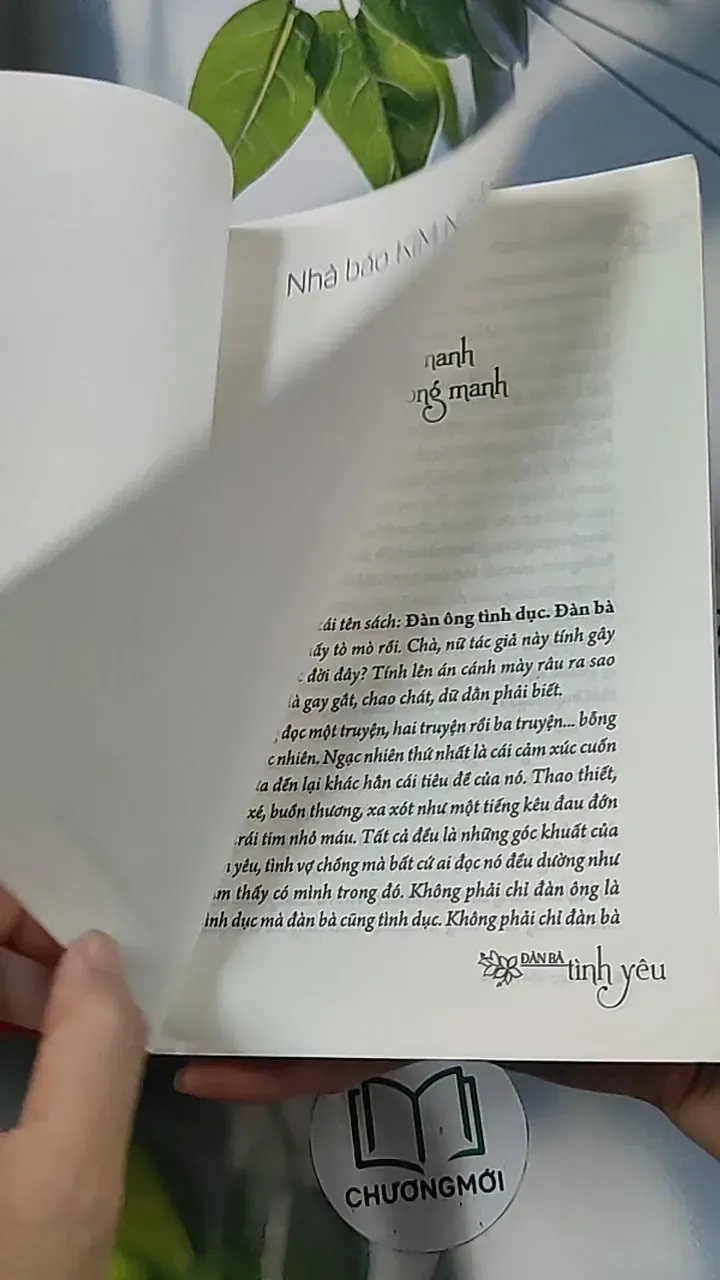 Nhà báo KIM
manh
manh
tên sách: Đàn ông tình dục. Đàn bà
tò mò rồi. Chà, nữ tác giả này tính gây
đời đây? Tính lên án cánh mày râu ra sao
gay gắt, chao chát, dữ dằn phải biết.
đọc một truyện, hai truyện rồi ba truyện... bỗng
nhiên. Ngạc nhiên thứ nhất là cái cảm xúc cuốn
đến lại khác hẳn cái tiêu đề của nó. Thao thiết,
xé, buồn thương, xa xót như một tiếng kêu đau đớn
tim nhỏ máu. Tất cả đều là những góc khuất của
yêu, tình vợ chồng mà bất cứ ai đọc nó đều dường như
thấy có mình trong đó. Không phải chỉ đàn ông là
dục mà đàn bà cũng tình dục. Không phải chỉ đàn bà
ĐÀN BÀ tình yêu
CHƯƠNGMỚI